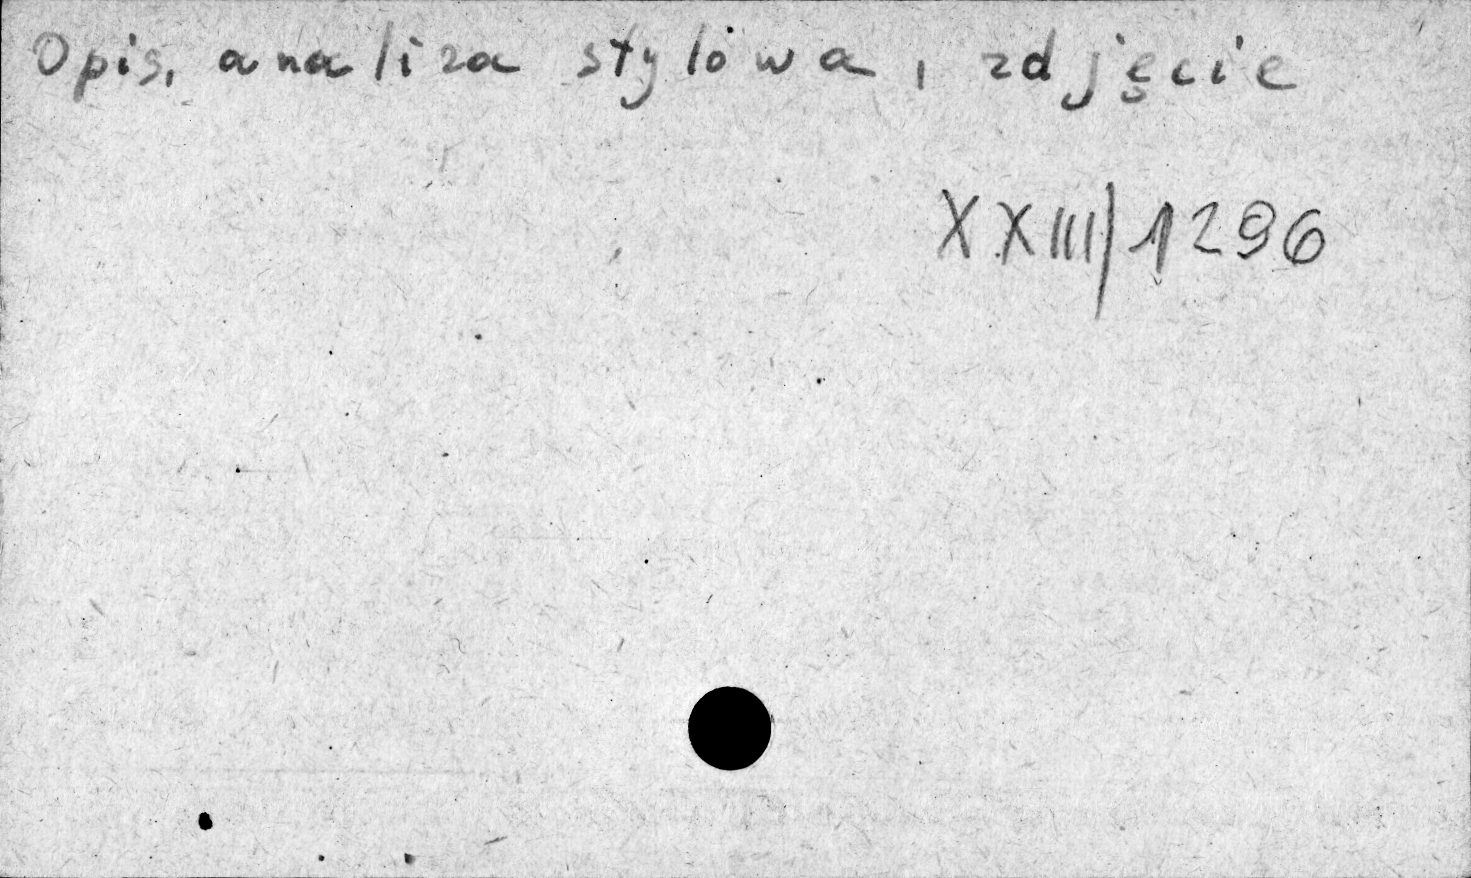 Opis, analiza stylowa, zdjęcie
XXIII/1296